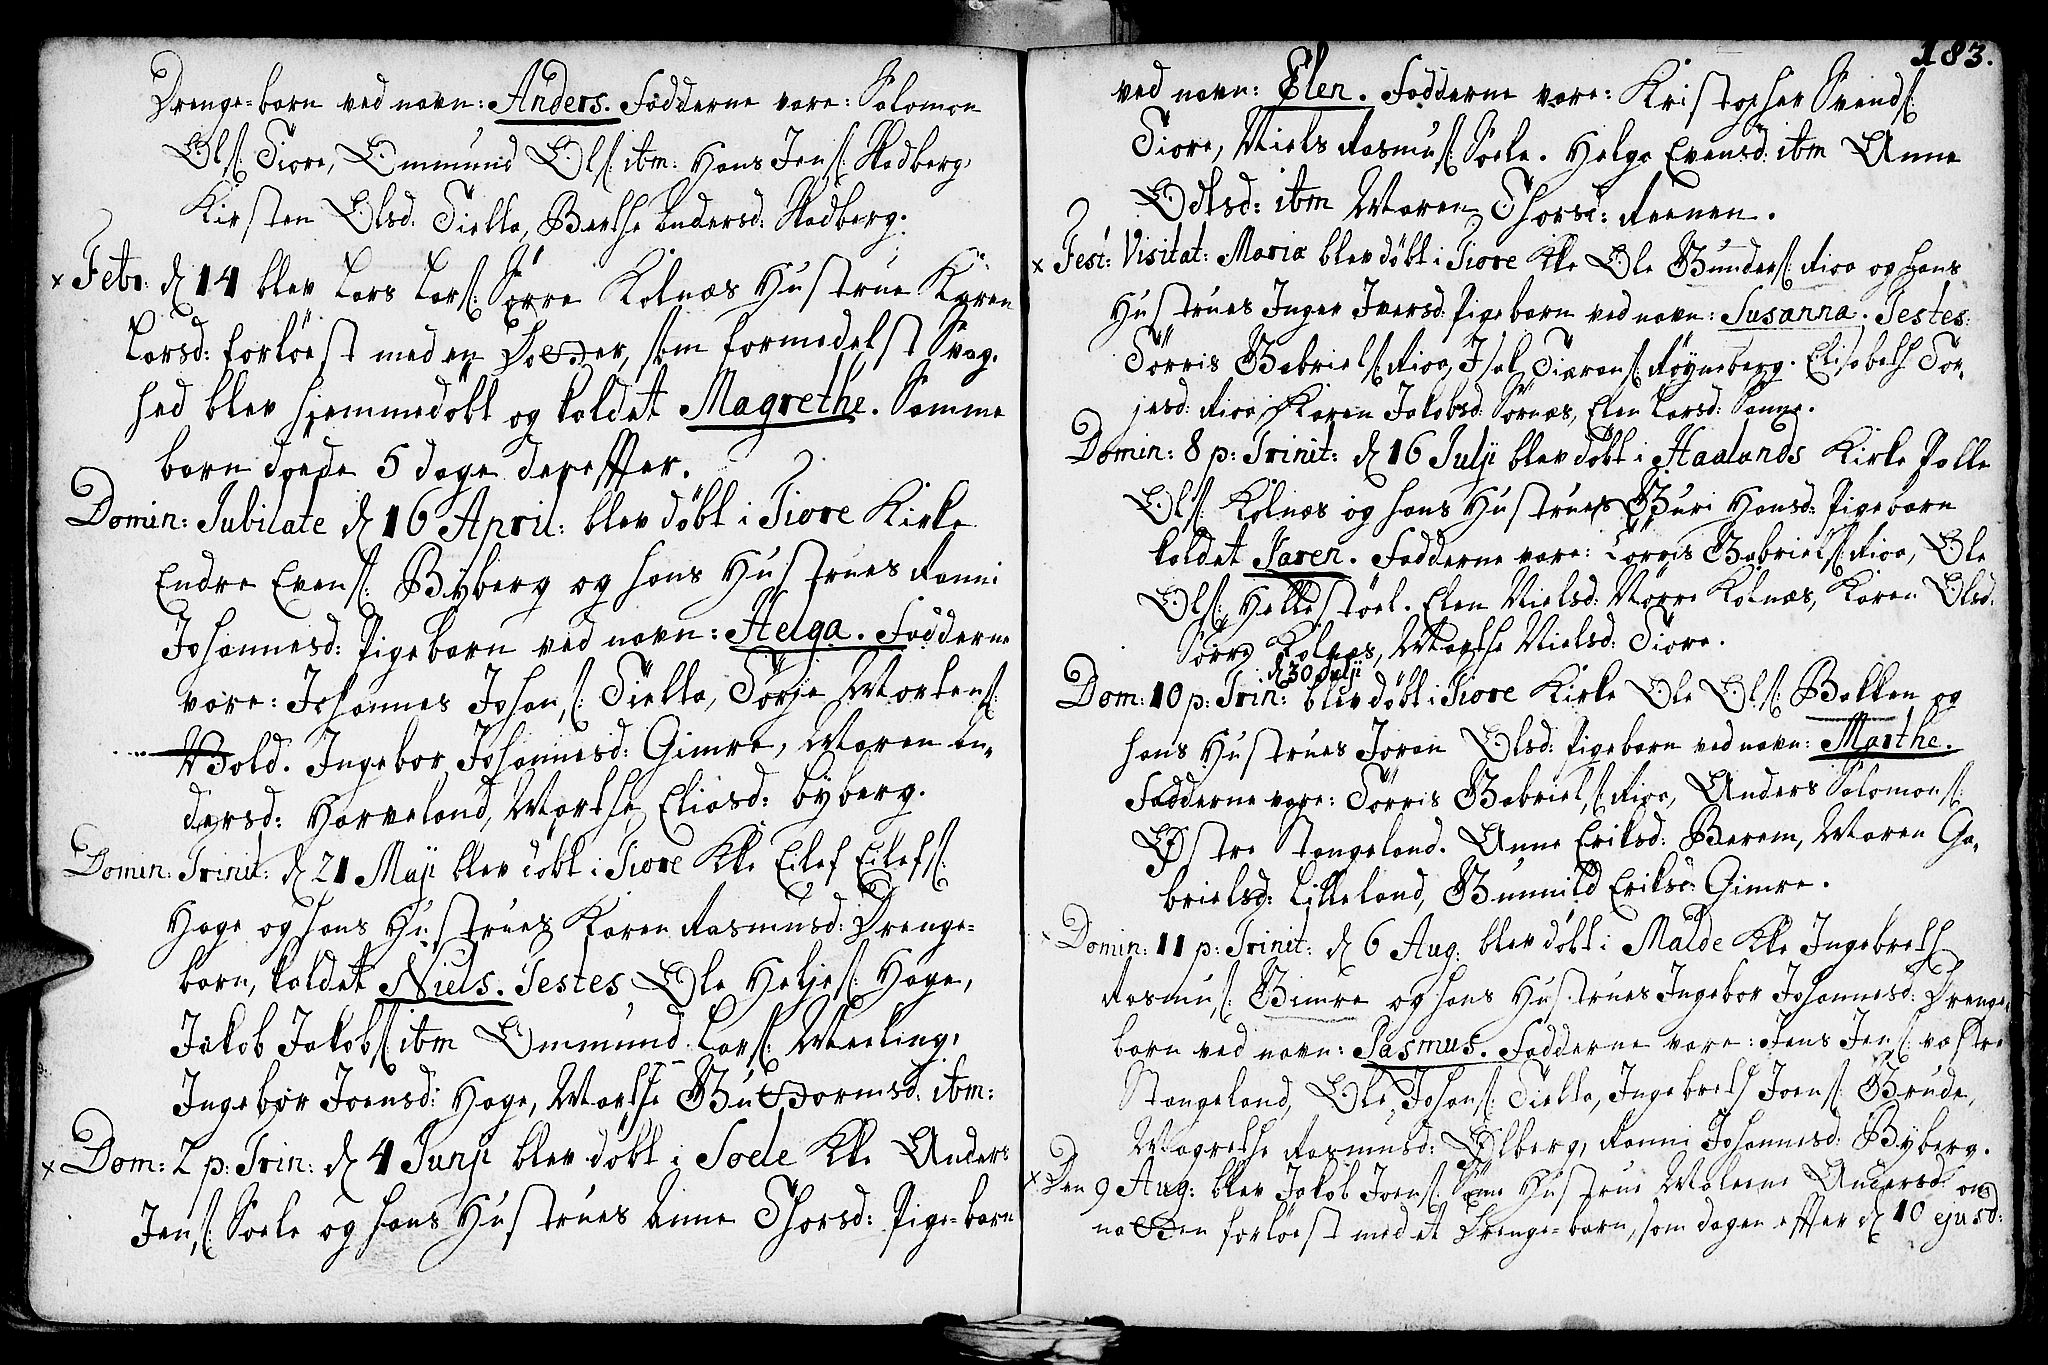 Drenge-barn ved navn: Anders. Fadderne vare: Salomon
Ols: Tiore, Ommund Ols: itm: Hans Jens: Skadberg,
Kirsten Olsd: Tielta, Berthe Andersd: Skadberg.
x Febr: d 14 blev Lars Lars: Sörre Kolnæs Hustrue Karen
Larsd: forlöest med en Dotter, som formedelst Svag-
hed blev hiemmedöbt og kaldet Magrethe. Samme
barn döede 5 dage dereffter.
Domin: Jubilate d 16 April: blev döbt i Tiore Kirke
Endre Evens: Byberg og hans Hustrues Ranni
Johannesd: Pigebarn ved navn: Helga. Fadderne
vare: Johannes Johans: Tielta, Törje Mortens:
Vold. Ingebor Johannesd: Gimre, Maren An-
dersd: Harveland, Marthe Eliasd: byberg.
Domin: Trinit: d 21 Maji blev döbt i Tiore Kke Eilef Eilefs:
Hage og hans Hustrues Karen Rasmusd: Drenge-
barn, kaldet Niels. Testes Ole Heljes: Hage,
Jakob Jakobs: itm Ommund Lars: Meeling,
Ingebor Joensd: Hage, Marthe Guttormsd: itm:
x Dom: 2 p: Trin: d 4 Junji blev döbt i Soele Kke Anders
Jens: Soele og hans Hustrues Anne Thorsd: Pige-barn
183.
ved navn: Elen. Fadderne vare: Kristopher Svends:
Tiore, Niels Rasmus: Soele. Helga Evensd: itm Anne
Odlsd: itm Maren Thorsd: Reenen.
x Fest: Visitat: Maria blev döbt i Tiore Kke Ole Gunders: Risa og hans
Hustrues Inger Iversd: Pigebarn ved navn: Susanna. Testes:
Törris Gabriels: Risa, Isak Tiærans: Röyneberg. Elisabeth Tor-
jesd: Risa, Karen Jakobsd: Sörnæs, Elen Larsd: Sange.
Domin: 8 p: Trinit: d 16 Julji blev döbt i Haalands Kirke Palle
Ols: Kolnæs og hans Hustrues Guri Hansd: Pigebarn
kaldet Karen. Fadderne vare: Törris Gabriels: Risa, Ole
Ols: Hellestöel. Elen Nielsd: Nörre Kolnæs, Karen Olsd:
Sörre Kolnæs, Marthe Nielsd: Tiore.
d 30 Julji
Dom: 10 p: Trin: blev döbt i Tiore Kirke Ole Ols: Bakken og
hans Hustrues Joran Olsd: Pigebarn ved navn: Marthe.
Fadderne vare: Törris Gabriels: Risa, Anders Salomons:
Östre Stangeland. Anne Eriksd: Berem, Maren Ga-
brielsd: Litleland, Gunnild Eriksd: Gimre.
Domin: 11 p: Trinit: d 6 Aug: blev döbt i Malde Kke Ingebreth
Rasmus: Gimre og hans Hustrues Ingebor Johannesd: Drenge-
barn ved navn: Rasmus. Fadderne vare: Jens Jens: væstre
Stangeland, Ole Johans: Tielta, Ingebreth Joens: Grude,
Magrethe Rasmusd: Ölberg, Ranni Johannesd: Byberg.
x Den 9 Aug: blev Jakob Joens: Sömme Hustrue Maleene Andersd: om
natten forlöest med et Drenge-barn, som dagen effter d 10 ejusd: